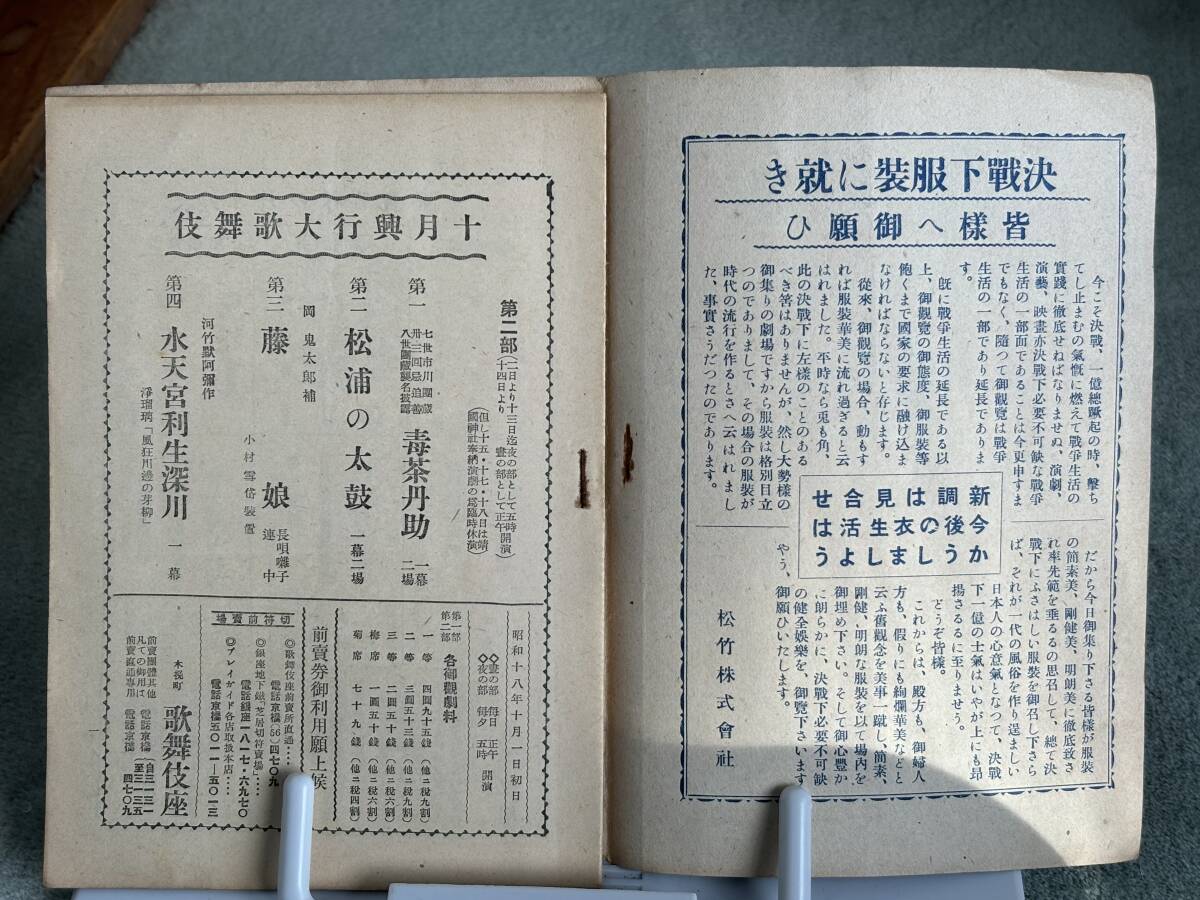 決戰下服裝に就き
皆樣へ御願ひ
今こそ決戰、一億總蹶起の時、擊ち
てし止まむの氣慨に燃えて戰爭生活の
實踐に徹底せねばなりませぬ、演劇、
演藝、映畫亦決戰下必要不可缺な戰爭
生活の一部面であることは今更申すま
でもなく、隨つて御觀覽は戰爭
生活の一部であり延長でありま
す。
既に戰爭生活の延長である以
上、御觀覽の御態度、御服裝等
飽くまで國家の要求に融け込ま
なければならないと存じます。
從來、御觀覽の場合、動もす
れば服裝華美に流れ過ぎると云
はれました。平時なら兎も角、
此の決戰下に左樣のことのある
べき筈はありませんが、然し大勢樣の
御集りの劇場ですから服裝は格別目立
つのでありまして、その場合の服裝が
時代の流行を作るとさへ云はれまし
た、事實さうだつたのであります。
新調は見合せ
今後の衣生活は
かうしましよう
だから今日御集り下さる皆樣が服裝
の簡素美、剛健美、明朗美に徹底致さ
れ率先範を垂るるの思召して、總て決
戰下にふさはしい服裝を御召し下さら
ば、それが一代の風俗を作り逞ましい
日本人の心意氣となつて、決戰
下一億の士氣はいやが上にも昂
揚さるるに至りませう。
どうぞ皆樣。
これからは、殿方も、御婦人
方も、假りにも絢爛華美などと
云ふ舊觀念を美事一蹴し、簡素、
剛健、明朗な服裝を以て場內を
御埋め下さい。そして御心豐か
に朗らかに、決戰下必要不可缺
の健全娛樂を、御覽下さいます
やう、
御願ひいたします。
松竹株式會社
十月興行大歌舞伎
第二部
(二日より十三日迄夜の部として五時開演)
(十四日より 晝の部として正午)
(但し十五・十七・十八日は靖
國神社奉納演劇の爲臨時休演)
第一
七世市川團藏
卅三回忌追善
八世團藏襲名披露
毒茶丹助
一幕
二場
第二 松浦の太鼓 一幕二場
岡鬼太郎補
第三 藤娘
長唄囃子
連中
小村雪岱裝置
河竹默阿彌作
第四 水天宮利生深川 一幕
淨瑠璃「風狂川邊の芽柳」
昭和十八年十月一日初日
◇晝の部 每日 正午
◇夜の部 每夕 五時
開演
第一部
第二部
各御觀劇料
一等 四圓九十五錢(他ニ稅九割)
二等 三圓五十三錢(他ニ稅九割)
三等 二圓五十錢(他ニ稅六割)
梅席 一圓五十錢(他ニ稅六割)
菊席 七十九錢(他ニ稅四割)
前賣券御利用願上候
切符前賣場
◎歌舞伎座前賣所直通……
電話京橋(56)四七〇九
◎銀座地下鐵「芝居切符賣場」……
電話銀座・八一七・六九七〇
◎プレイガイド各店取扱本店……
電話京橋五〇一一―五〇一三
木挽町 歌舞伎座
前賣團體其他
凡ての御用は
電話京橋(自三一三一
至三一三五)
前賣直通專用
電話京橋 四七〇九